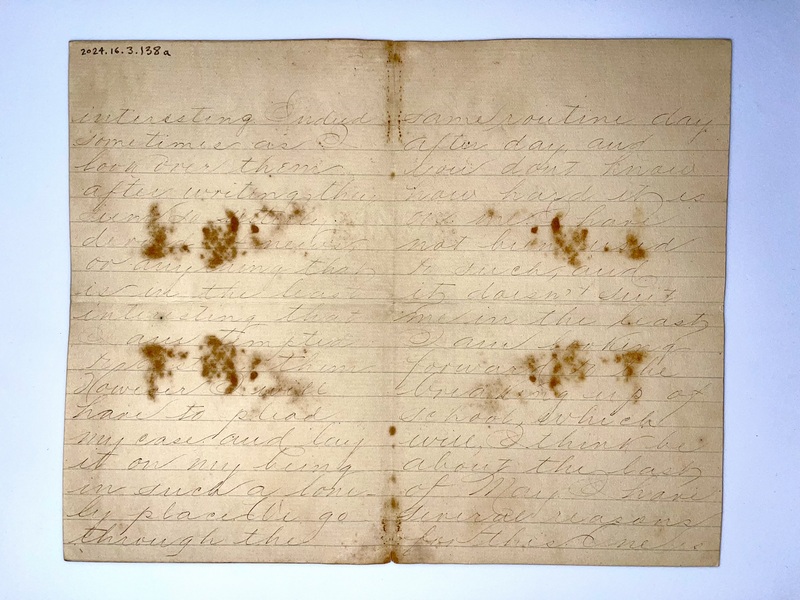 2024.16.3.138a
interesting Indeed
sometimes as I
look over them
after writing them
or anything that
is in the least
interesting that
I am tempted
them
However I will
have to plead
my case and lay
it on my being
in such a lone-
ly place We go
through the
same routine day
after day and
you dont know
how hard it is
on me I have
not been used
to such, and
it doesn't suit
me in the least
I am looking
forward to the
breaking up of
school, which
will, I think be
about the last
of May I have
several reasons
for this One is